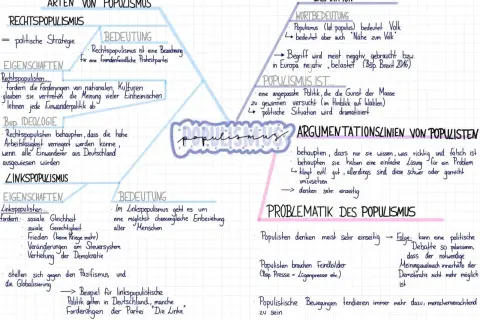 ARTEN VON POPULISMUS
RECHTSPOPULISMUS
→ politische Strategie
BEDEUTUNG
Rechtspopulismus ist eine Bezeichnung
für eine fremdenfeindliche Protestpartei
EIGENSCHAFTEN
Rechtspopulisten...
fordern die Förderungen von nationalen Kulturen
glauben sie vertreten die Meinung vieler Einheimischen
lehnen jede Einwanderpolitik ab
Bsp. IDEOLOGIE
Rechtspopulisten behaupten, dass die hohe
Arbeitslosigkeit verringert werden könne,
wenn alle Einwanderer aus Deutschland
ausgewiesen würden
LINKSPOPULISMUS
EIGENSCHAFTEN
Linkspopulisten...
fordern: soziale Gleichheit
soziale Gerechtigkeit
Frieden (keine Kriege mehr)
Veränderungen am Steuersystem
Vertiefung der Demokratie
stellen sich gegen den Pazifismus und
die Globalisierung
BEDEUTUNG
Im Linkspopulismus geht es um
eine möglichst chancengleiche Einbeziehung
aller Menschen
→ Beispiel für linkspopulistische
Politik gelten in Deutschland manche
Forderungen der Partei "Die Linke"
POPULISMUS
populismus
WORTBEDEUTUNG
Populismus (lat. populus) bedeutet Volk
bedeutet aber auch "Nähe zum Volk"
→ Begriff wird meist negativ gebraucht bzw.
in Europa negativ belastet (Bsp. Brexit 2016)
POPULISMUS IST
eine angepasste Politik, die die Gunst der Masse
zu gewinnen versucht (im Hinblick auf Wahlen)
politische Situation wird dramatisiert
ARGUMENTATIONSLINIEN VON POPULISTEN
behaupten, dass nur sie wissen, was richtig und falsch ist
behaupten sie haben eine einfache Lösung für ein Problem
klingt evtl. gut, allerdings sind diese schwer oder garnicht
umzusetzen
→ denken sehr einseitig
PROBLEMATIK DES POPULISMUS
Populisten denken meist sehr einseitig → Folge: kann eine politische
Debatte so polarisieren,
dass der notwendige
Meinungsaustausch innerhalb der
Demokratie nicht mehr möglich
ist
Populisten brauchen Feindbilder
(Bsp. Presse - Lügenpresse etc.)
Populistische Bewegungen tendieren immer mehr dazu, menschenverachtend
zu sein